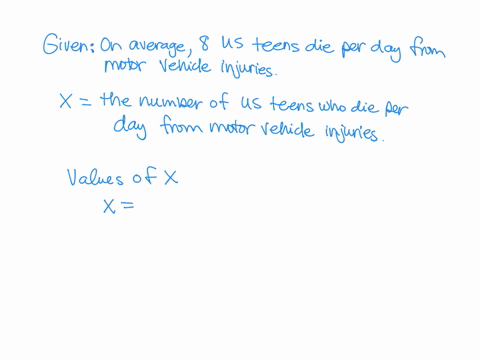 Given: On average, 8 US teens die per day from
motor vehicle injuries.
X = the number of US teens who die per
day from motor vehicle injuries.
Values of X
X =